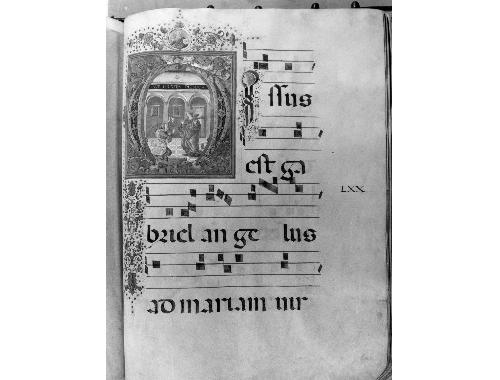 MIssus
est ga
LXX
briel an ge lus
ad mariam vir